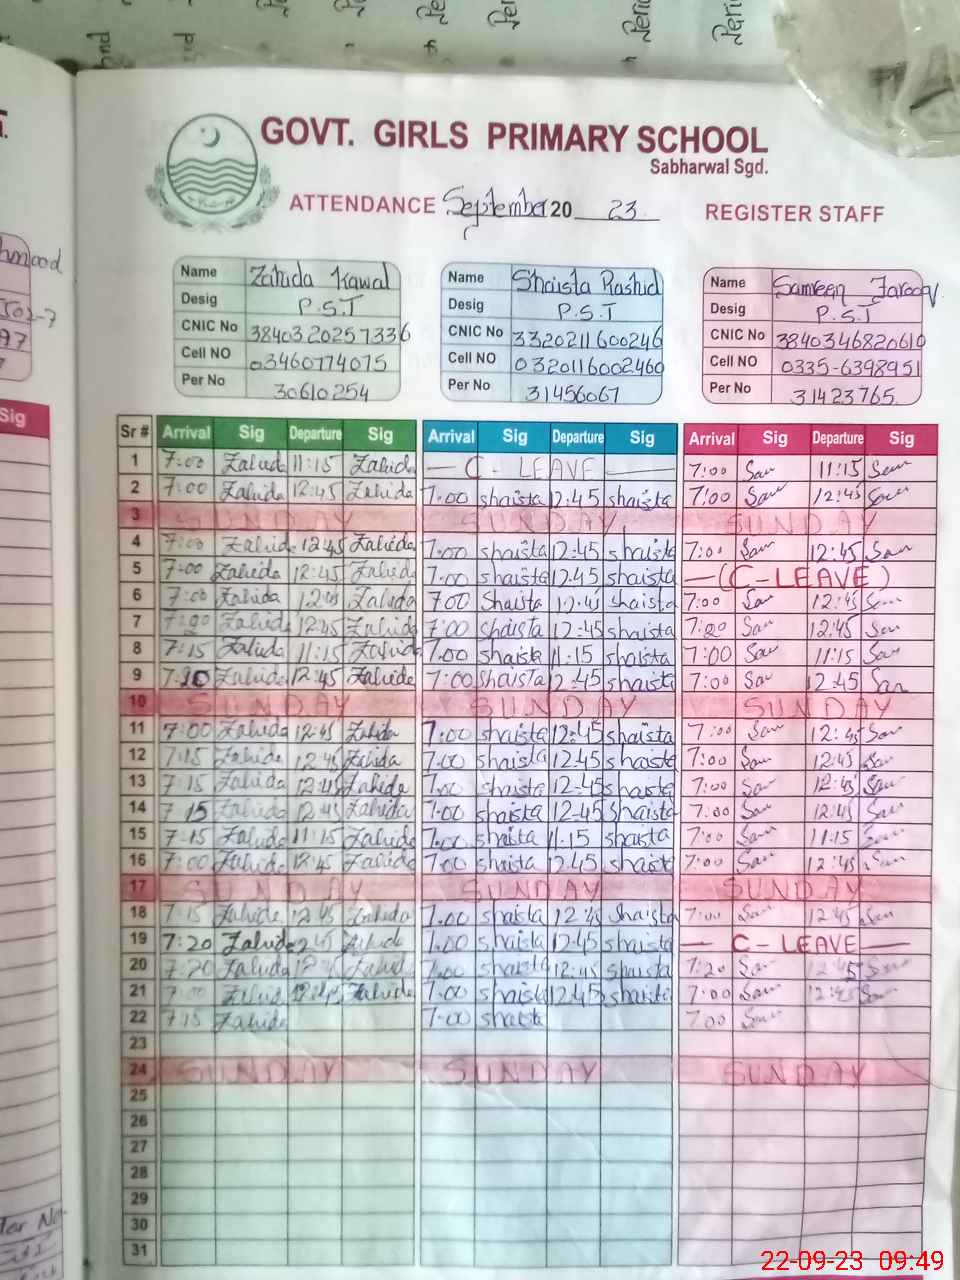 GOVT. GIRLS PRIMARY SCHOOL
Sabharwal Sgd.
ATTENDANCE September 20 23 REGISTER STAFF
Name Zahida Kawal Name Shaista Rashid Name Samreen Farooq
Desig P.S.T Desig P.S.T Desig P.S.T
CNIC No 3840320257336 CNIC No 3320211600246 CNIC No 3840346820610
Cell NO 03460774075 Cell NO 0320116002460 Cell NO 0335-6398951
Per No 30610254 Per No 31456067 Per No 31423765
Sr # Arrival Sig Departure Sig Arrival Sig Departure Sig Arrival Sig Departure Sig
1 7:00 Zahida 11:15 Zahida C - LEAVE 7:00 Sam 11:15 Sam
2 7:00 Zahida 12:45 Zahida 7.00 shaista 12:45 shaista 7:00 Sam 12:45 Sam
3 SUNDAY SUNDAY SUNDAY
4 7:00 Zahida 12:45 Zahida 7.00 shaista 12:45 shaista 7:00 Sam 12:45 Sam
5 7:00 Zahida 12:45 Zahida 7.00 shaista 12.45 shaista (C-LEAVE)
6 7:00 Zahida 12:45 Zahida 7.00 Shaista 12:45 shaista 7:00 Sam 12:45 Sam
7 7:20 Zahida 12:45 Zahida 7:00 shaista 12:45 shaista 7:20 Sam 12:45 Sam
8 7:15 Zahida 11:15 Zahida 7.00 shaista 11:15 shaista 7:00 Sam 11:15 Sam
9 7:20 Zahida 12:45 Zahida 7:00 shaista 12:45 shaista 7:00 Sam 12:45 Sam
10 SUNDAY SUNDAY SUNDAY
11 7:00 Zahida 12:45 Zahida 7.00 shaista 12:45 shaista 7:00 Sam 12:45 Sam
12 7:15 Zahida 12:45 Zahida 7.00 shaista 12:45 shaista 7:00 Sam 12:45 Sam
13 7:15 Zahida 12:45 Zahida 7.00 shaista 12:45 shaista 7:00 Sam 12:45 Sam
14 7:15 Zahida 12:45 Zahida 7.00 shaista 12.45 shaista 7:00 Sam 12:45 Sam
15 7:15 Zahida 11:15 Zahida 7.00 shaista 11.15 shaista 7:00 Sam 11:15 Sam
16 7:00 Zahida 12:45 Zahida 7.00 shaista 12.45 shaista 7:00 Sam 12:45 Sam
17 SUNDAY SUNDAY SUNDAY
18 7:15 Zahida 12:45 Zahida 7.00 shaista 12:45 Shaista 7:00 Sam 12:45 Sam
19 7:20 Zahida 12:45 Zahida 7.00 shaista 12:45 shaista C - LEAVE
20 7:20 Zahida Zahida 7.00 shaista 12:45 shaista 7:20 Sam 12:45 Sam
21 7:00 Zahida 12:45 Zahida 7.00 shaista 12:45 shaista 7:00 Sam 12:45 Sam
22 7:15 Zahida 7.00 shaista 7:00 Sam
23
24 SUNDAY SUNDAY SUNDAY
25
26
27
28
29
30
31
22-09-23 09:49